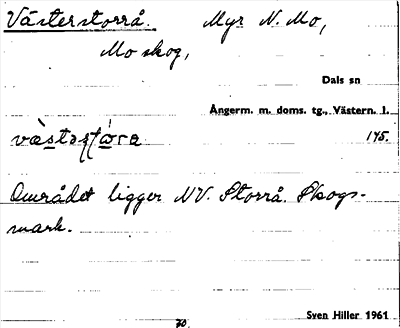 Västerstorrå. Myr N. Mo,
Mo skog,
Dals sn
Ångerm. m. doms. tg., Västern. l.
195.
Området ligger NV. Storrå. Skogs-
mark.
Sven Hiller 1961
30.